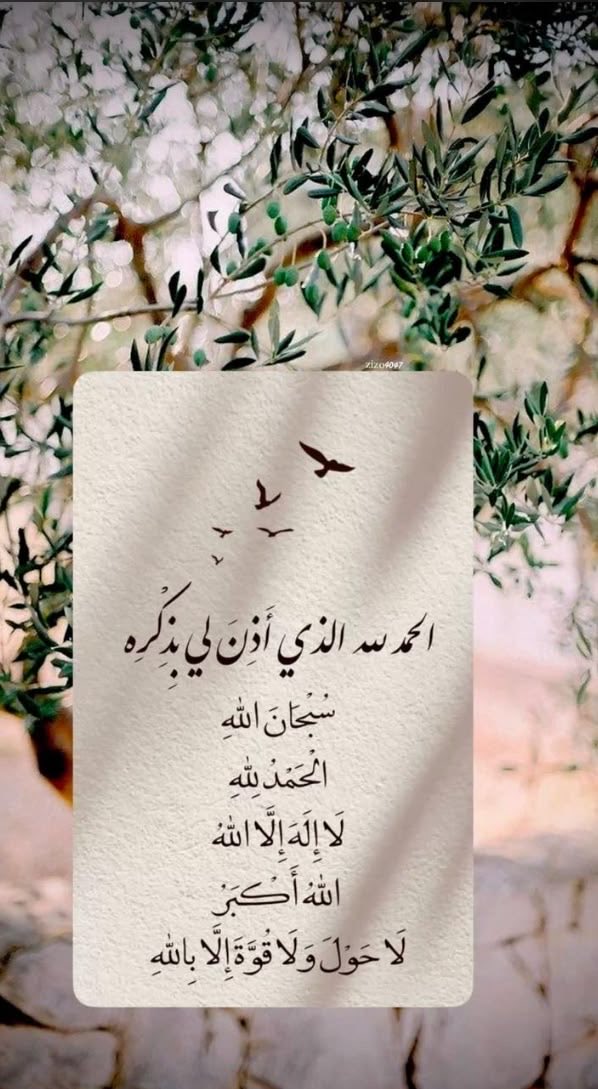 zizo4047
الحمد لله الذي أَذِنَ لي بِذِكْرِه
سُبْحَانَ اللهِ
الْحَمْدُ لِلهِ
لَا إِلَهَ إِلَّا اللهُ
اللهُ أَكْبَرُ
لَا حَوْلَ وَلَا قُوَّةَ إِلَّا بِاللهِ